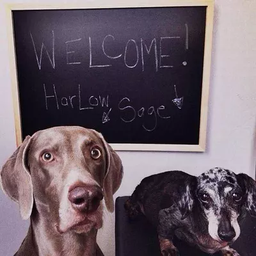 WELCOME!
HarLow & Sage!